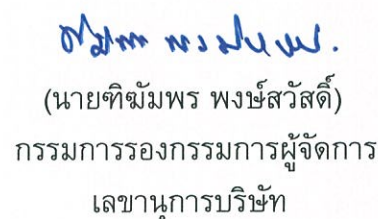 (นายฑิฆัมพร พงษ์สวัสดิ์)
กรรมการรองกรรมการผู้จัดการ
เลขานุการบริษัท